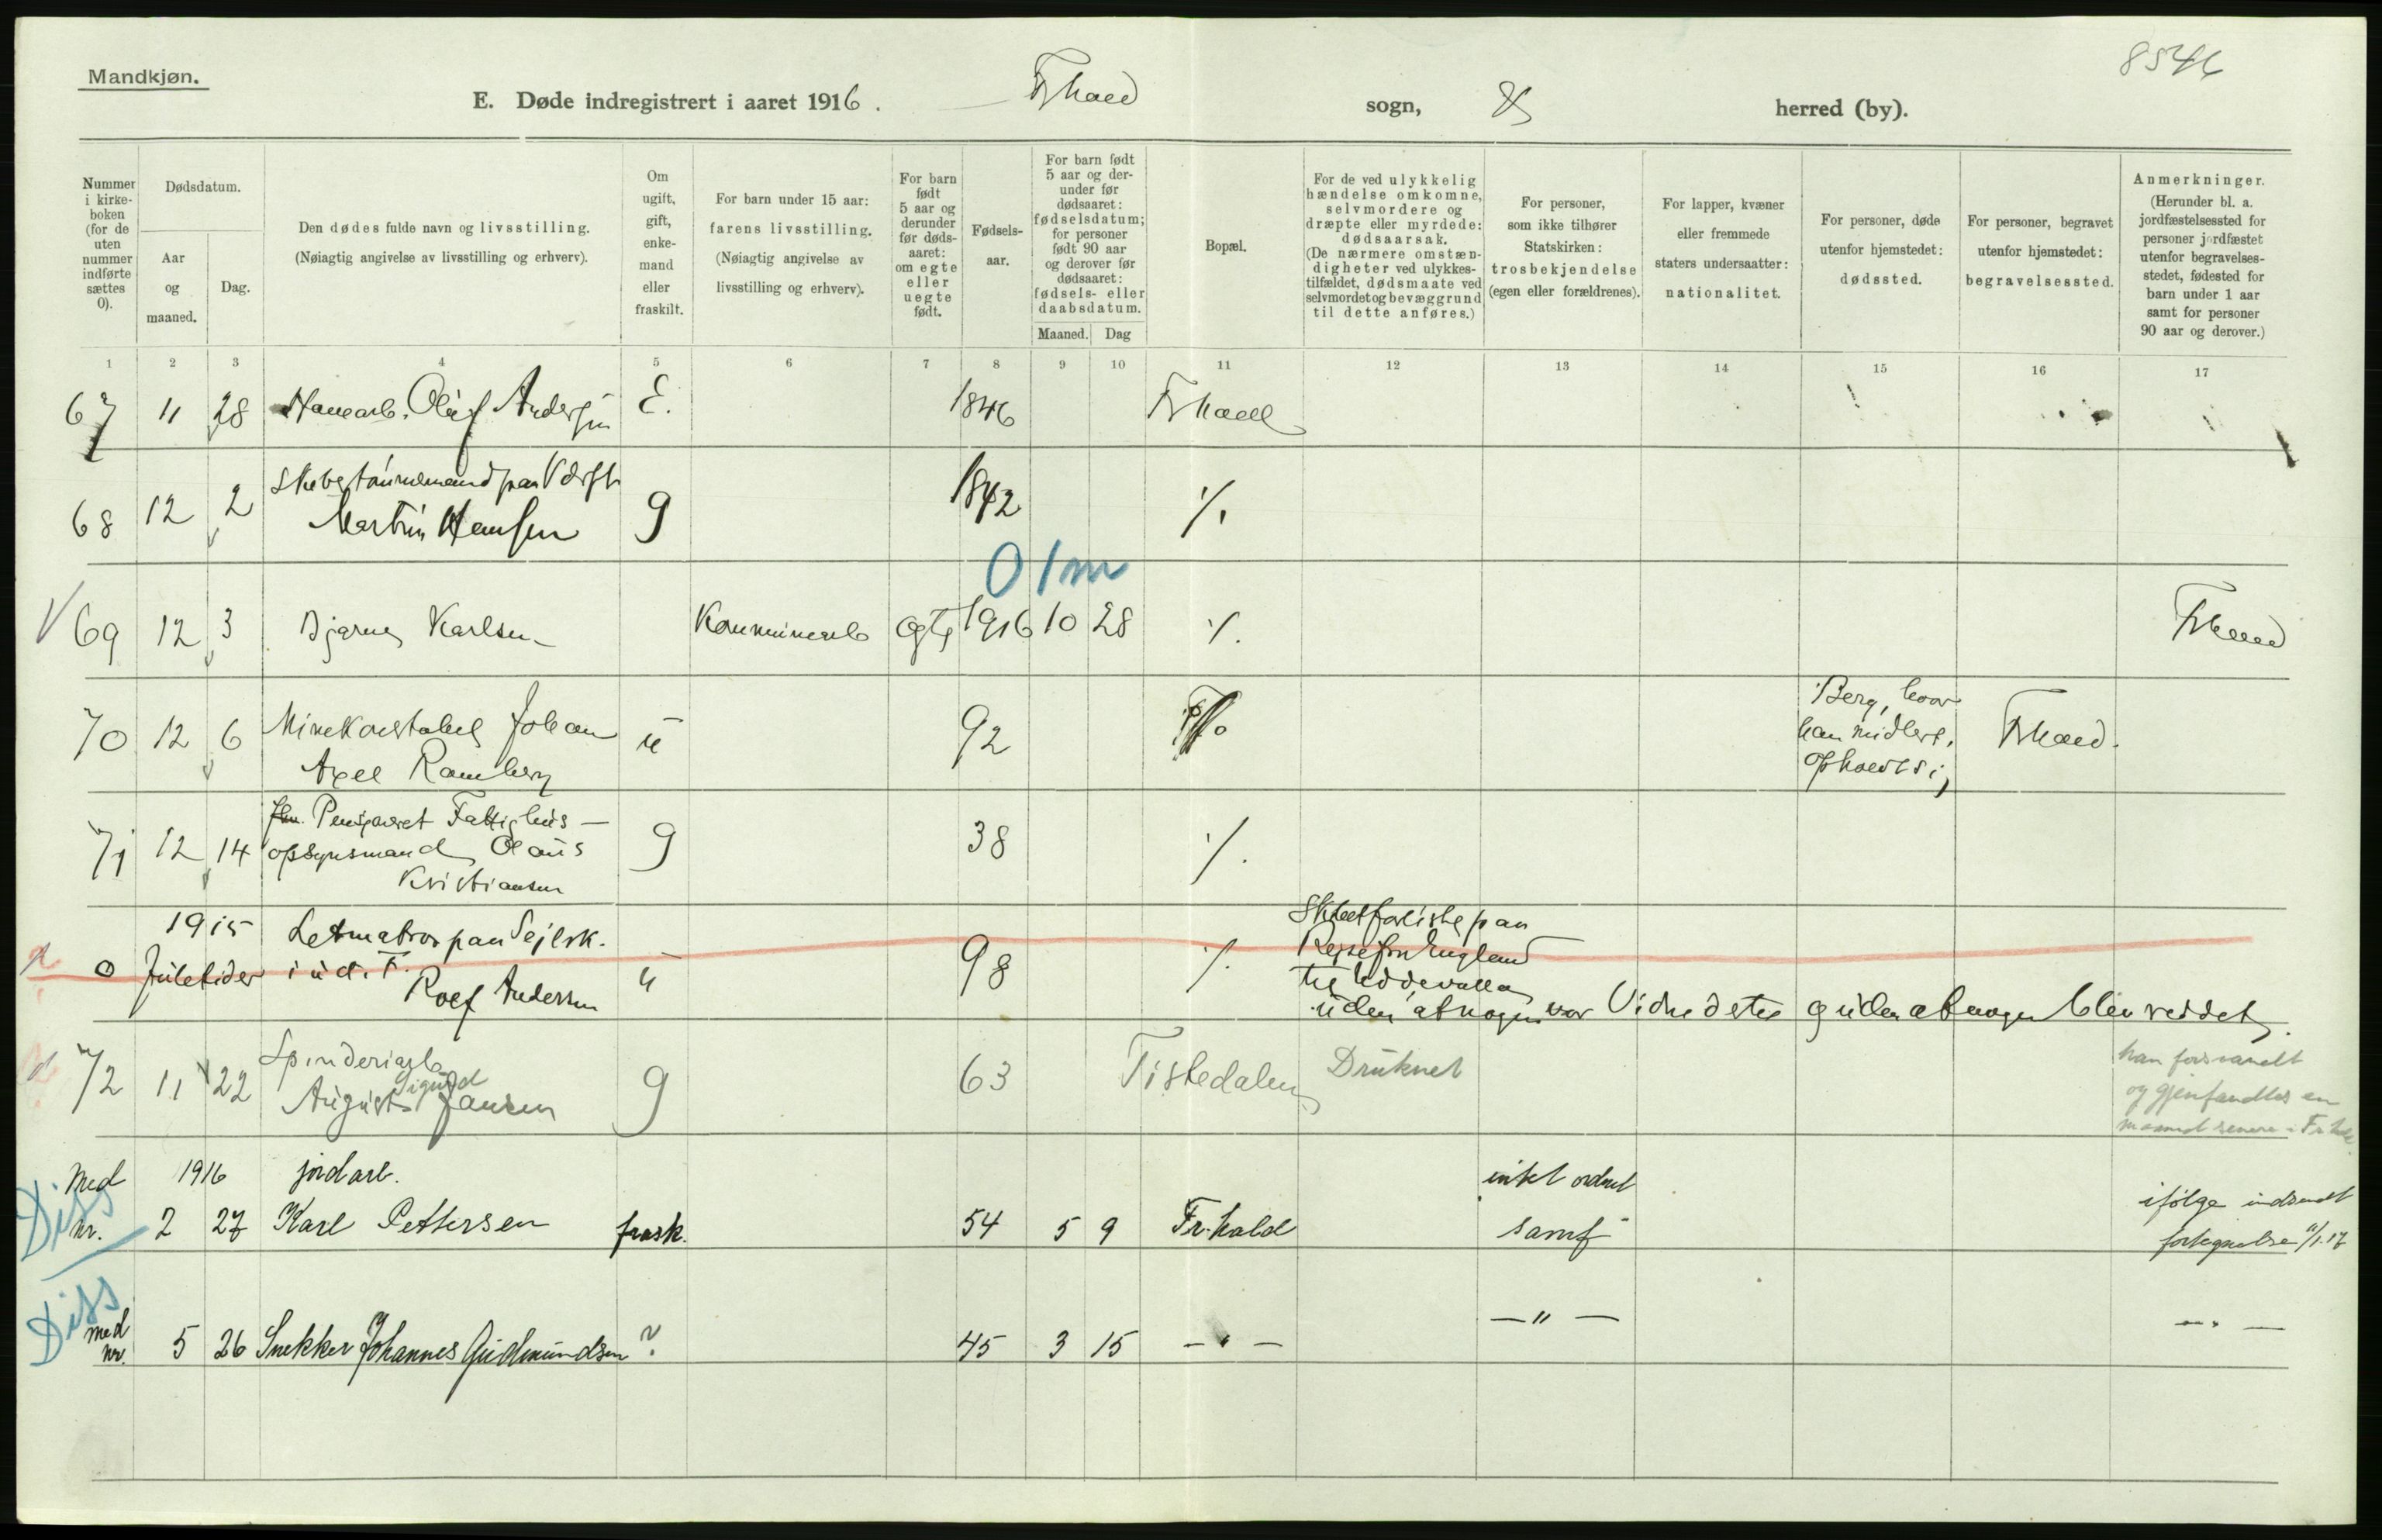 Mandkjøn.
8546
E. Døde indregistrert i aaret 1916. Frhald sogn, herred (by).
Nummer i kirke-boken (for de uten nummer indførte sættes 0).
Dødsdatum.
Aar og maaned.
Dag.
Den dødes fulde navn og livsstilling.
(Nøiagtig angivelse av livsstilling og erhverv).
Om ugift, gift, enke-mand eller fraskilt.
For barn under 15 aar: farens livsstilling.
(Nøiagtig angivelse av livsstilling og erhverv).
For barn født 5 aar og derunder før døds-aaret: om egte eller uegte født.
Fødsels-aar.
For barn født 5 aar og der-under før dødsaaret: fødselsdatum; for personer født 90 aar og derover før dødsaaret: fødsels- eller daabsdatum.
Maaned. Dag
Bopæl.
For de ved ulykkelig hændelse omkomne, selvmordere og dræpte eller myrdede: dødsaarsak.
(De nærmere omstæn-digheter ved ulykkes-tilfældet, dødsmaate ved selvmordet og bevæggrund til dette anføres.)
For personer, som ikke tilhører Statskirken: trosbekjendelse (egen eller forældrenes).
For lapper, kvæner eller fremmede staters undersaatter: nationalitet.
For personer, døde utenfor hjemstedet: dødssted.
For personer, begravet utenfor hjemstedet: begravelsessted.
Anmerkninger.
(Herunder bl. a. jordfæstelsessted for personer jordfæstet utenfor begravelses-stedet, fødested for barn under 1 aar samt for personer 90 aar og derover.)
1 2 3 4 5 6 7 8 9 10 11 12 13 14 15 16 17
67 11 28 Oluf Andersen E. 1846 Frhald
68 12 2 Martin Hansen g 1842 ⁒
01m
69 12 3 Bjarne Karlsen Kommunearb egte 1916 10 28 ⁒ Frhald
70 12 6 Minekonstabel Johan
Axel Ramberg u 92 Berg, hvor
han midlert.
opholdt sig Frhald.
71 12 14 Pensjoneret Fattighus-
opsynsmand Olaus
Kristiansen g 38 ⁒
0 1915
Juletider Letmatros paa Sejlsk.
i ud. F.
Rolf Andersen u 98 ⁒ Skibet forliste paa
Rejse fra England
til Uddevalla
uden at nogen var Vidne dertil g uden at nogen blev reddet.
72 11 22 Spinderiarb
August Sigurd Jansen g 63 Tistedalen Druknet han forsvandt
og gjenfandtes en
maaned senere i Fr.hald
Diss
Med nr. 1916
2 27 jordarb.
Karl Pettersen frask. 54 5 9 Fr.hald intet ordnet
samf ifølge indsendt
fortegnelse 11/1.17
Diss
med nr. 5 26 Snekker Johannes Gudmundsen ? 45 3 15 — " — — " — — " —